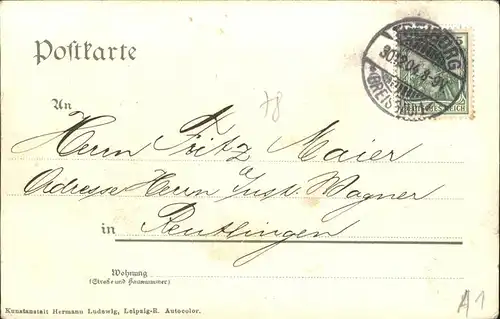 Postkarte
FREIBURG
5
30.12.04. 8-9V.
(BREISGAU)
DEUTSCHES REICH
78
An
Herrn Fritz Maier
Adresse Herrn Gust. Wagner
in Reutlingen
Wohnung
(Straße und Hausnummer)
Kunstanstalt Hermann Ludewig, Leipzig-R. Autocolor.
A1